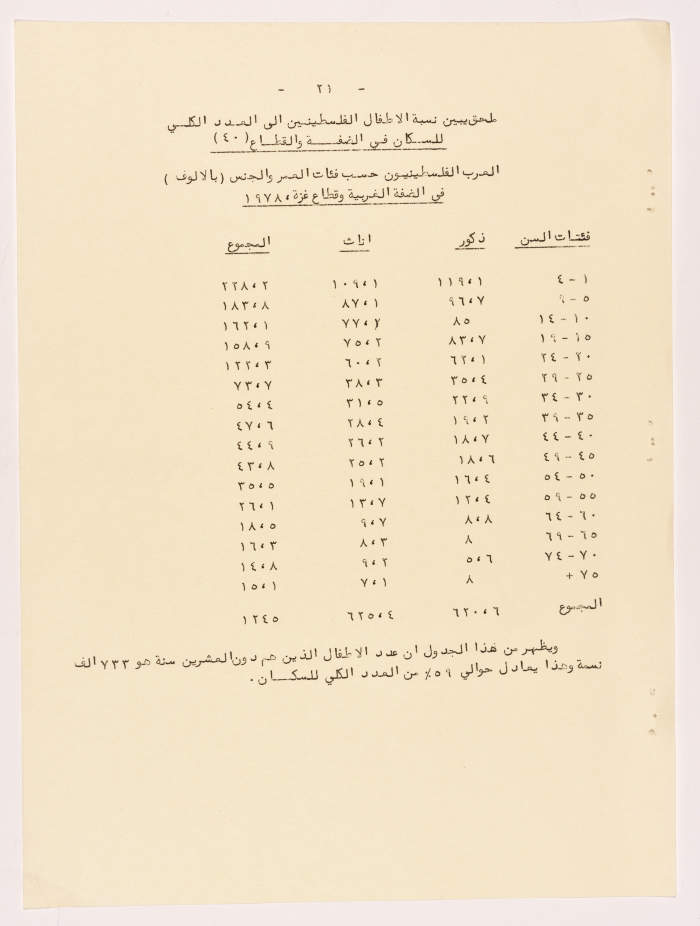 - ٢١ -
ملحق يبين نسبة الاطفال الفلسطينين الى العدد الكلي
للسكان في الضفة والقطاع (٤٠)
العرب الفلسطينيون حسب فئات العمر والجنس (بالالوف)
في الضفة الغربية وقطاع غزة، ١٩٧٨
فئتات السن ذكور اناث المجموع
١ - ٤ ١١٩،١ ١٠٩،١ ٢٢٨،٢
٥ - ٩ ٩٦،٧ ٨٧،١ ١٨٣،٨
١٠ - ١٤ ٨٥ ٧٧،٢ ١٦٢،١
١٥ - ١٩ ٨٣،٧ ٧٥،٢ ١٥٨،٩
٢٠ - ٢٤ ٦٢،١ ٦٠،٢ ١٢٢،٣
٢٥ - ٢٩ ٣٥،٤ ٣٨،٣ ٧٣،٧
٣٠ - ٣٤ ٢٢،٩ ٣١،٥ ٥٤،٤
٣٥ - ٣٩ ١٩،٢ ٢٨،٤ ٤٧،٦
٤٠ - ٤٤ ١٨،٧ ٢٦،٢ ٤٤،٩
٤٥ - ٤٩ ١٨،٦ ٢٥،٢ ٤٣،٨
٥٠ - ٥٤ ١٦،٤ ١٩،١ ٣٥،٥
٥٥ - ٥٩ ١٢،٤ ١٣،٧ ٢٦،١
٦٠ - ٦٤ ٨،٨ ٩،٧ ١٨،٥
٦٥ - ٦٩ ٨ ٨،٣ ١٦،٣
٧٠ - ٧٤ ٥،٦ ٩،٢ ١٤،٨
٧٥ + ٨ ٧،١ ١٥،١
المجموع ٦٢٠،٦ ٦٢٥،٤ ١٢٤٥
ويظهر من هذا الجدول ان عدد الاطفال الذين هم دون العشرين سنة هو ٧٣٣ الف
نسمة وهذا يعادل حوالي ٥٩٪ من العدد الكلي للسكان.